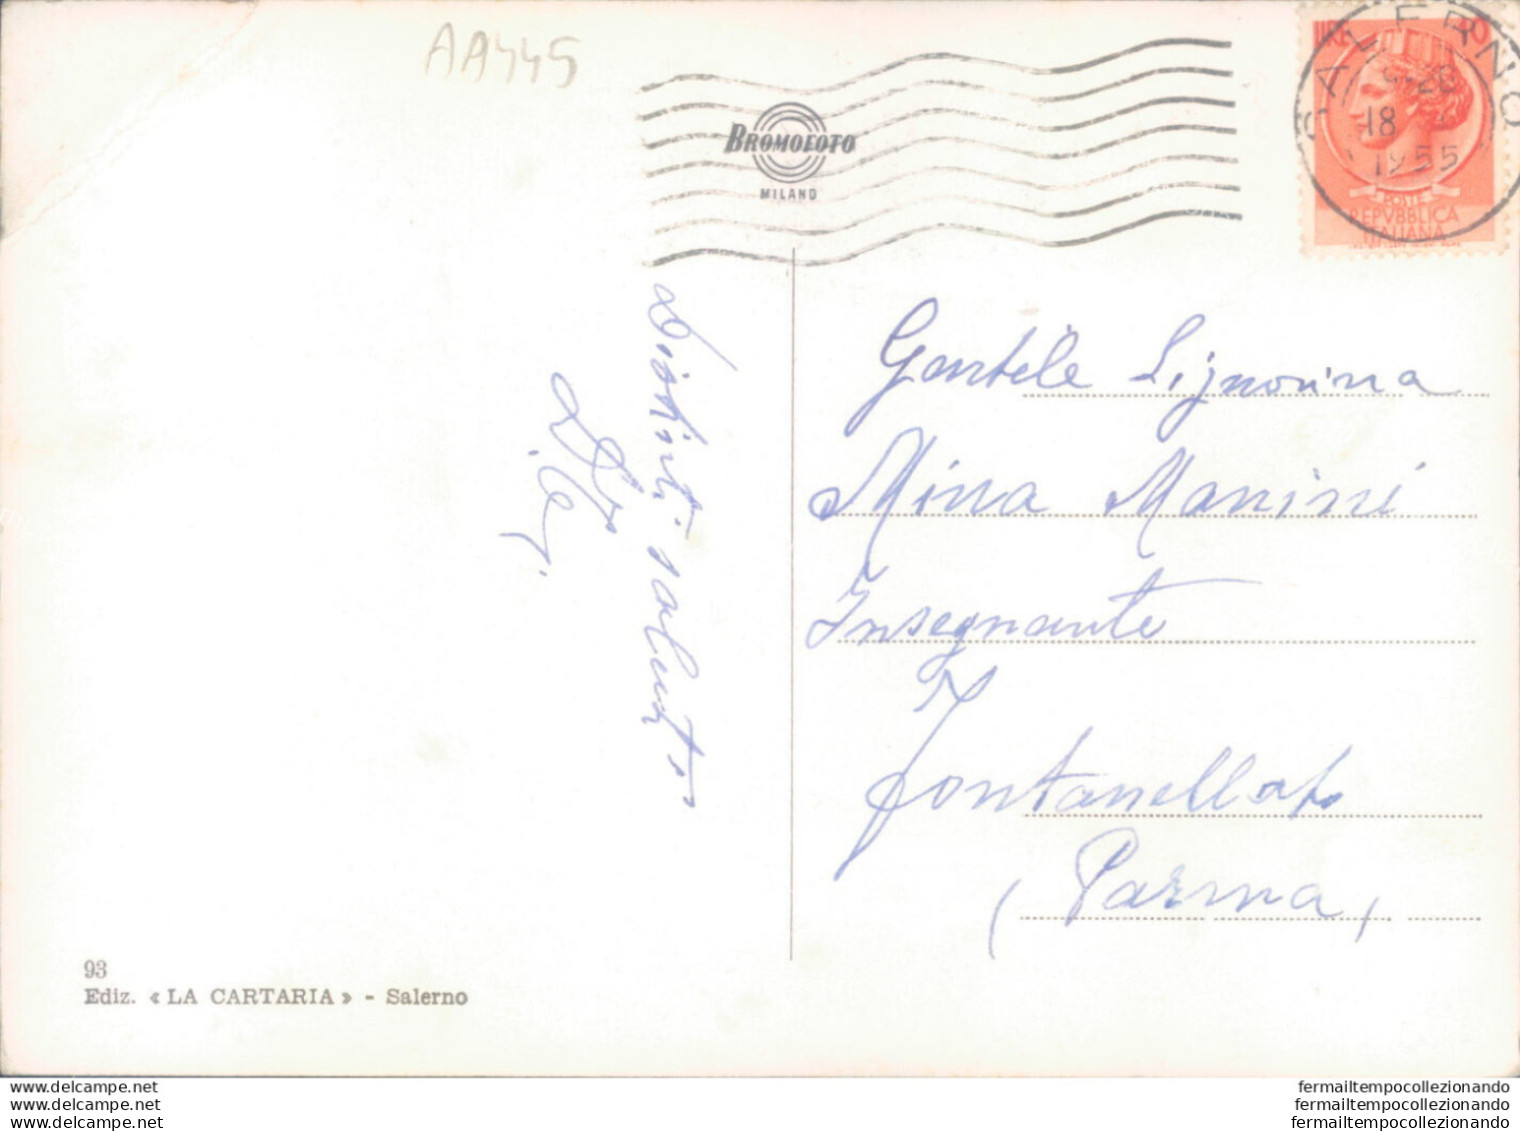 AA445
BROMOFOTO
MILANO
SALERNO
18
1955
LIRE
POSTE
REPVBBLICA
ITALIANA
Distinti saluti
Gentile Signorina
Mina Manini
Insegnante
Fontanellato
(Parma)
93
Ediz. « LA CARTARIA » - Salerno
www.delcampe.net
www.delcampe.net
www.delcampe.net
fermailtempocollezionando
fermailtempocollezionando
fermailtempocollezionando